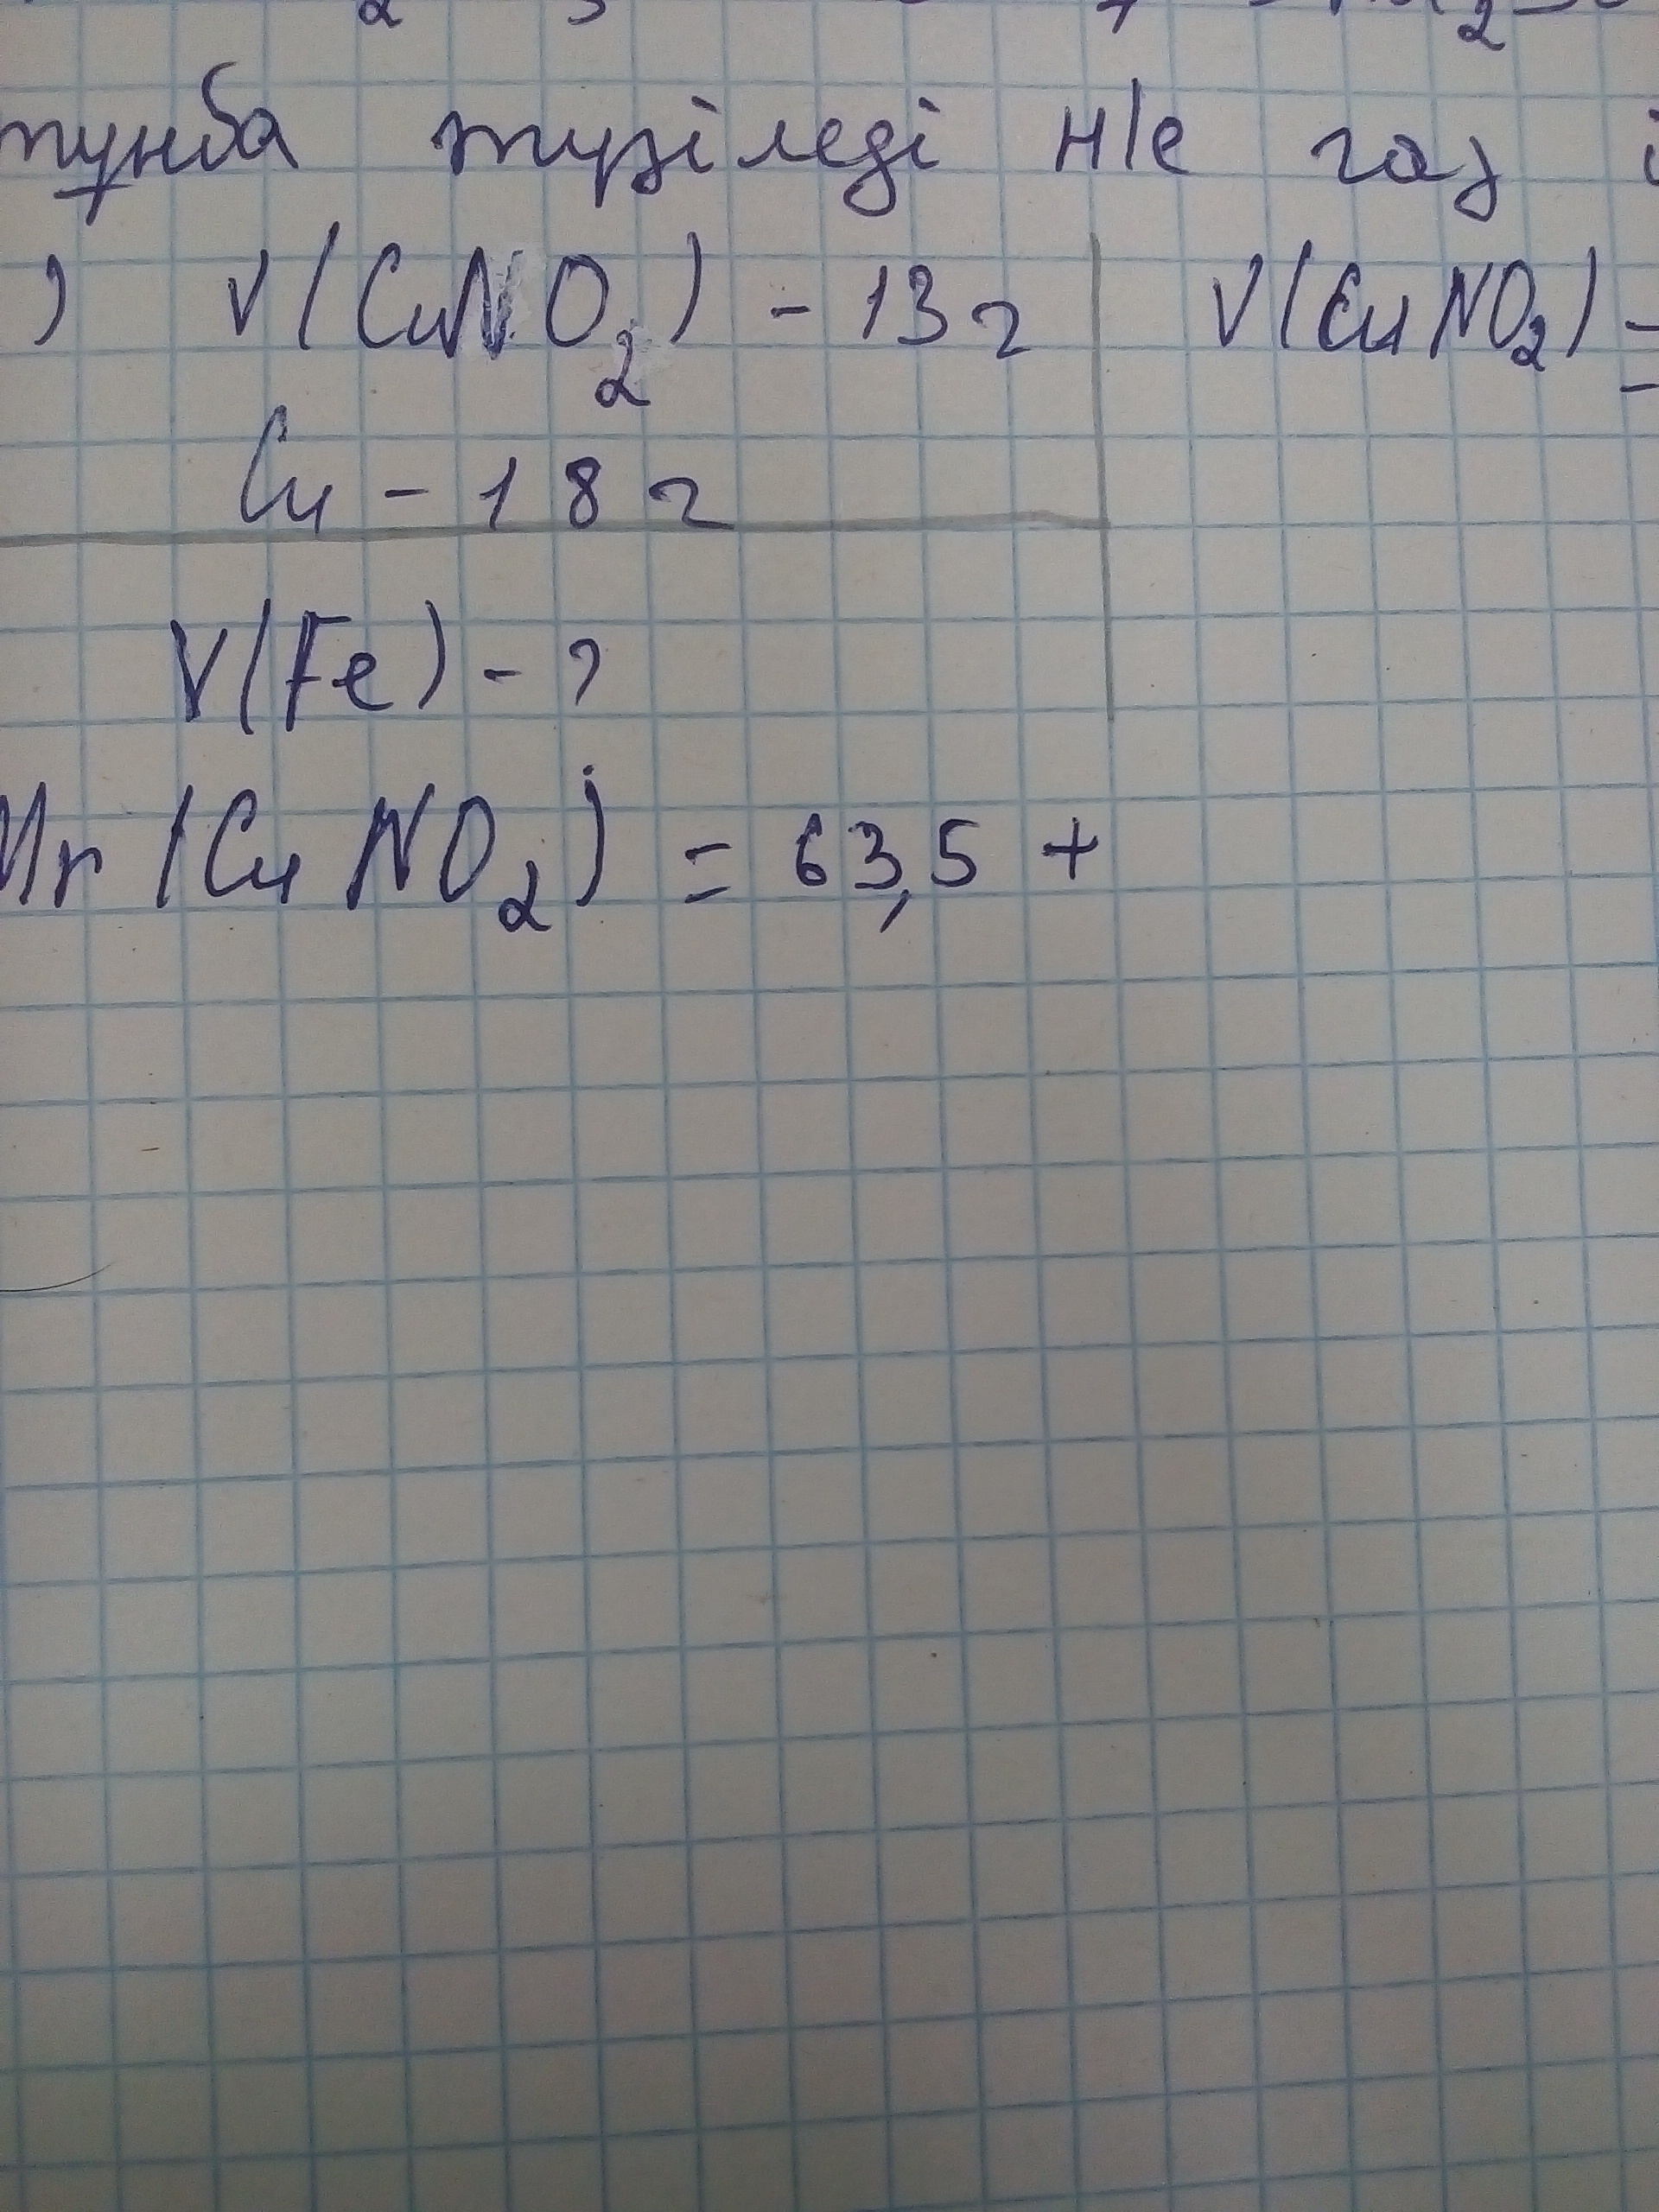 тунба түзіледі н/е газ
) V(CuNO2) - 13 г V(CuNO2) =
Cu - 18 г
V(Fe) - ?
Mr (CuNO2) = 63,5 +